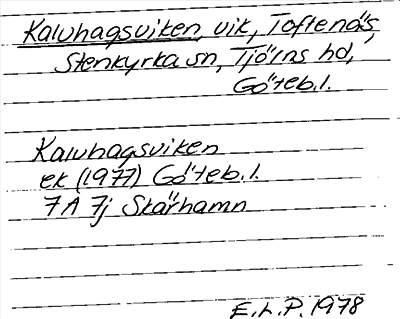 Kalvhagsviken, vik, Toftenäs,
Stenkyrka sn, Tjörns hd,
Göteb.l.
Kalvhagsviken
ek (1977) Göteb.l.
7A 7j Skärhamn
E.L.P. 1978